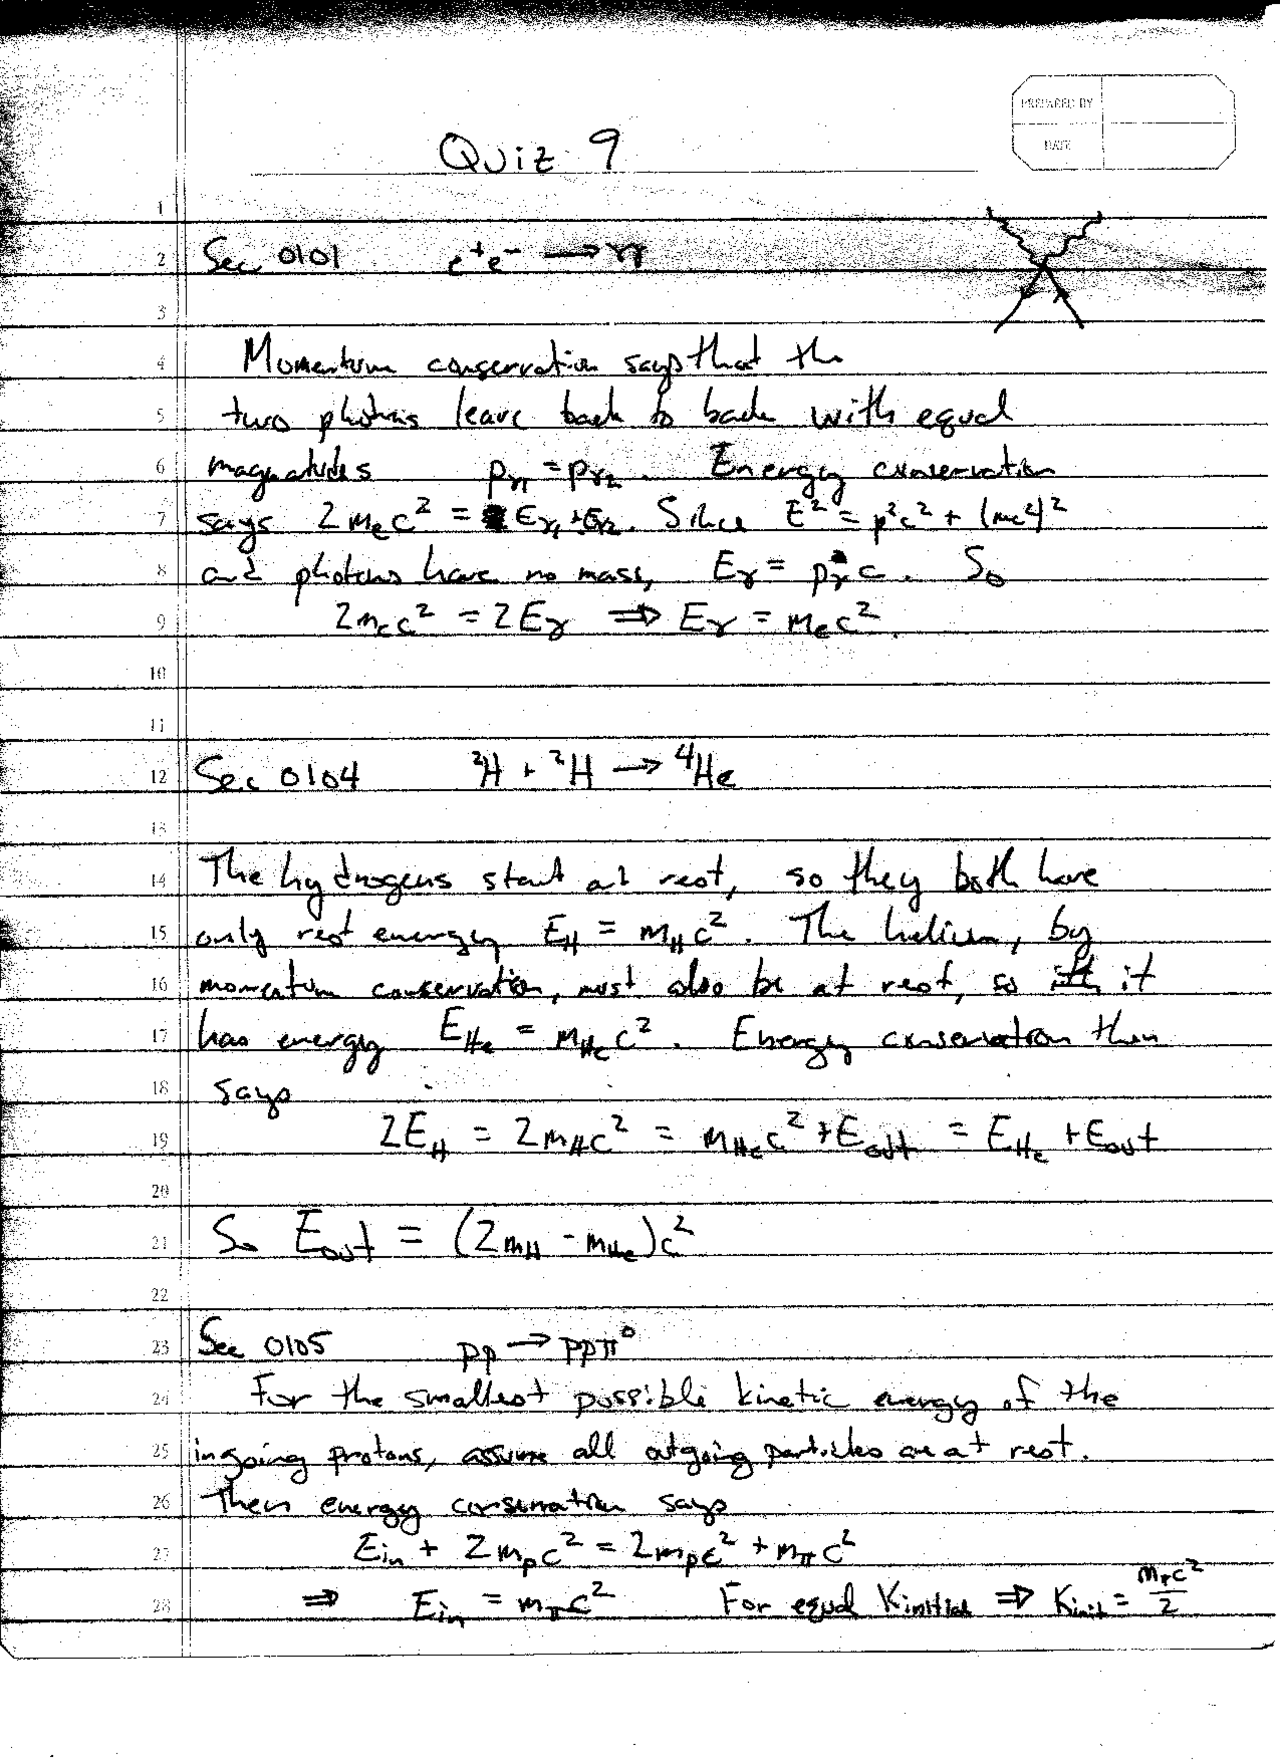 PREPARED BY
DATE
Quiz 9
1
2 Sec 0101 e⁺e⁻ → γγ
3
4 Momentum conservation says that the
5 two photons leave back to back with equal
6 magnatudes pγ1 = pγ2. Energy conservation
7 says 2mec² = Eγ1 + Eγ2. Since E² = p²c² + (mc²)²
8 and photons have no mass, Eγ = pγc. So
9 2mec² = 2Eγ ⇒ Eγ = mec².
10
11
12 Sec 0104 ²H + ²H → ⁴He
13
14 The hydrogens start at rest, so they both have
15 only rest energy EH = mHc². The helium, by
16 momentum conservation, must also be at rest, so it
17 has energy EHe = mHec². Energy conservation then
18 says
19 2EH = 2mHc² = mHec² + Eout = EHe + Eout
20
21 So Eout = (2mH - mHe)c²
22
23 Sec 0105 pp → ppπ⁰
24 For the smallest possible kinetic energy of the
25 ingoing protons, assume all outgoing particles are at rest.
26 Then energy conservation says
27 Ein + 2mpc² = 2mpc² + mπc²
28 ⇒ Ein = mπc² For equal Kinitial ⇒ Kinit = mπc²/2